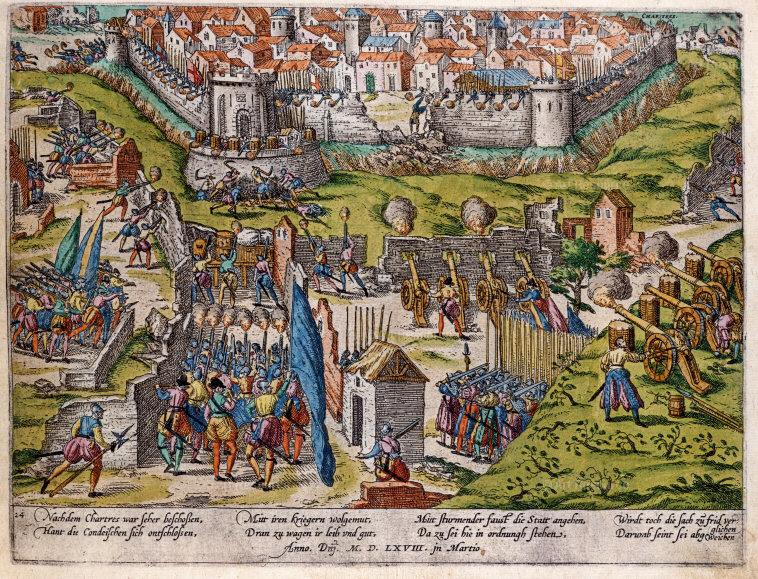 CHARTRES.
24
Nachdem Chartres war seher beschoßen,
Hant die Condeischen sich ontschloßen,
Mitt iren kriegern wolgemut,
Dran zu wagen ir leib vnd gut,
Mitt sturmender faust die Statt angehen,
Da zu sei hie in ordnungh stehen,
Wirdt doch die sach zu frid ver
glichen
Darumb seint sei abgeweichen
Anno. Dnj. M. D. LXVIII. jn Martio